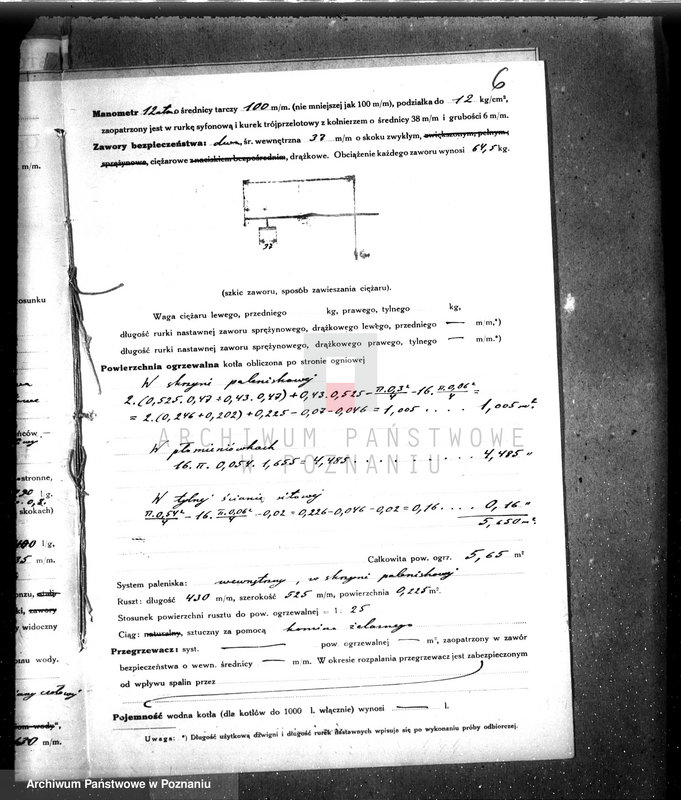 6
Manometr 12 atm o średnicy tarczy 100 m/m. (nie mniejszej jak 100 m/m), podziałka do 12 kg/cm²,
zaopatrzony jest w rurkę syfonową i kurek trójprzelotowy z kołnierzem o średnicy 38 m/m i grubości 6 m/m.
Zawory bezpieczeństwa: dwa, śr. wewnętrzna 37 m/m o skoku zwykłym, zwiększonym, pełnym,
sprężynowe, ciężarowe znaciskiem bezpośrednim, drążkowe. Obciążenie każdego zaworu wynosi 64,5 kg.
37
(szkic zaworu, sposób zawieszania ciężaru).
Waga ciężaru lewego, przedniego kg, prawego, tylnego kg,
długość rurki nastawnej zaworu sprężynowego, drążkowego lewego, przedniego — m/m,*)
długość rurki nastawnej zaworu sprężynowego, drążkowego prawego, tylnego — m/m.*)
Powierzchnia ogrzewalna kotła obliczona po stronie ogniowej
W skrzyni paleniskowej
2.(0,525.0,47+0,43.0,47)+0,43.0,525 - π.0,3²/4 - 16. π.0,06²/4 =
= 2.(0,246+0,202)+0,225-0,07-0,046 = 1,005 .... 1,005 m².
W płomieniówkach
16. π. 0,054. 1,655 = 4,485 .......... 4,485 "
W tylnej ścianie sitowej
π.0,54²/4 - 16. π.0,06²/4 - 0,02 = 0,226-0,046-0,02 = 0,16 .... 0,16 "
5,650 m².
Całkowita pow. ogrz. 5,65 m²
System paleniska: wewnętrzny, w skrzyni paleniskowej
Ruszt: długość 430 m/m, szerokość 525 m/m, powierzchnia 0,225 m².
Stosunek powierzchni rusztu do pow. ogrzewalnej = 1: 25
Ciąg: naturalny, sztuczny za pomocą komina żelaznego
Przegrzewacz: syst. — pow. ogrzewalnej — m², zaopatrzony w zawór
bezpieczeństwa o wewn. średnicy — m/m. W okresie rozpalania przegrzewacz jest zabezpieczonym
od wpływu spalin przez
Pojemność wodna kotła (dla kotłów do 1000 l. włącznie) wynosi — l.
Uwaga: *) Długość użytkową dźwigni i długość rurek nastawnych wpisuje się po wykonaniu próby odbiorczej.
m/m.
osunku
ońców
stronne,
l g.
skokach)
l/g,
35 m/m.
zawory
y widoczny
omu wody.
iom wody",
m/m.
ARCHIWUM PAŃSTWOWE
W POZNANIU
Archiwum Państwowe w Poznaniu